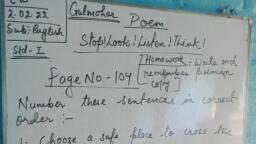 C W
2.02.22
Sub: English
Std - I
Gulmohar
Poem
Stop! Look! Listen! Think!
Page No - 104
Homework - Write and
remember poem in
copy
Number these sentences in correct
order :-
1. Choose a safe place to cross the